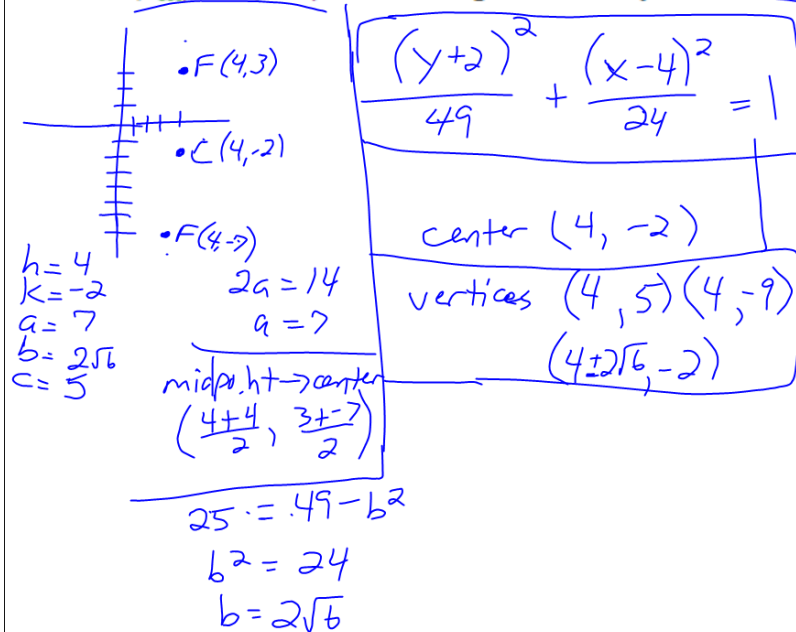 F(4,3)
C(4,-2)
F(4,-7)
h=4
k=-2
a=7
b=2√6
c=5
2a=14
a=7
midpoint→center
(4+4/2, 3+-7/2)
25=49-b²
b²=24
b=2√6
(y+2)²/49 + (x-4)²/24 = 1
center (4, -2)
vertices (4, 5)(4, -9)
(4±2√6, -2)